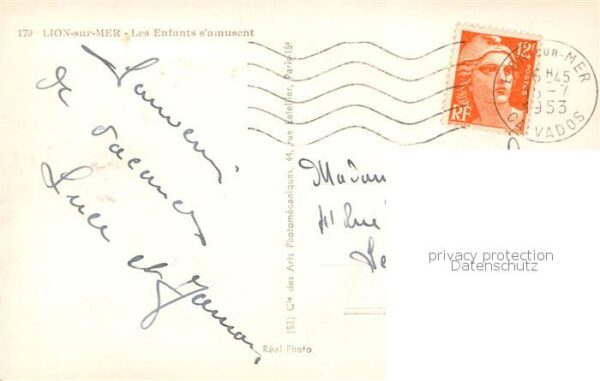 179 LION-sur-MER - Les Enfants s'amusent
Souvenir
de vacances
Luce et
(52) Cie des Arts Photomécaniques, 44, rue Letellier, Paris-15e
Réal-Photo
12F
POSTES
RF
SUR-MER
6H45
-7
1953
CALVADOS
Madam
41 Rue
privacy protection
Datenschutz